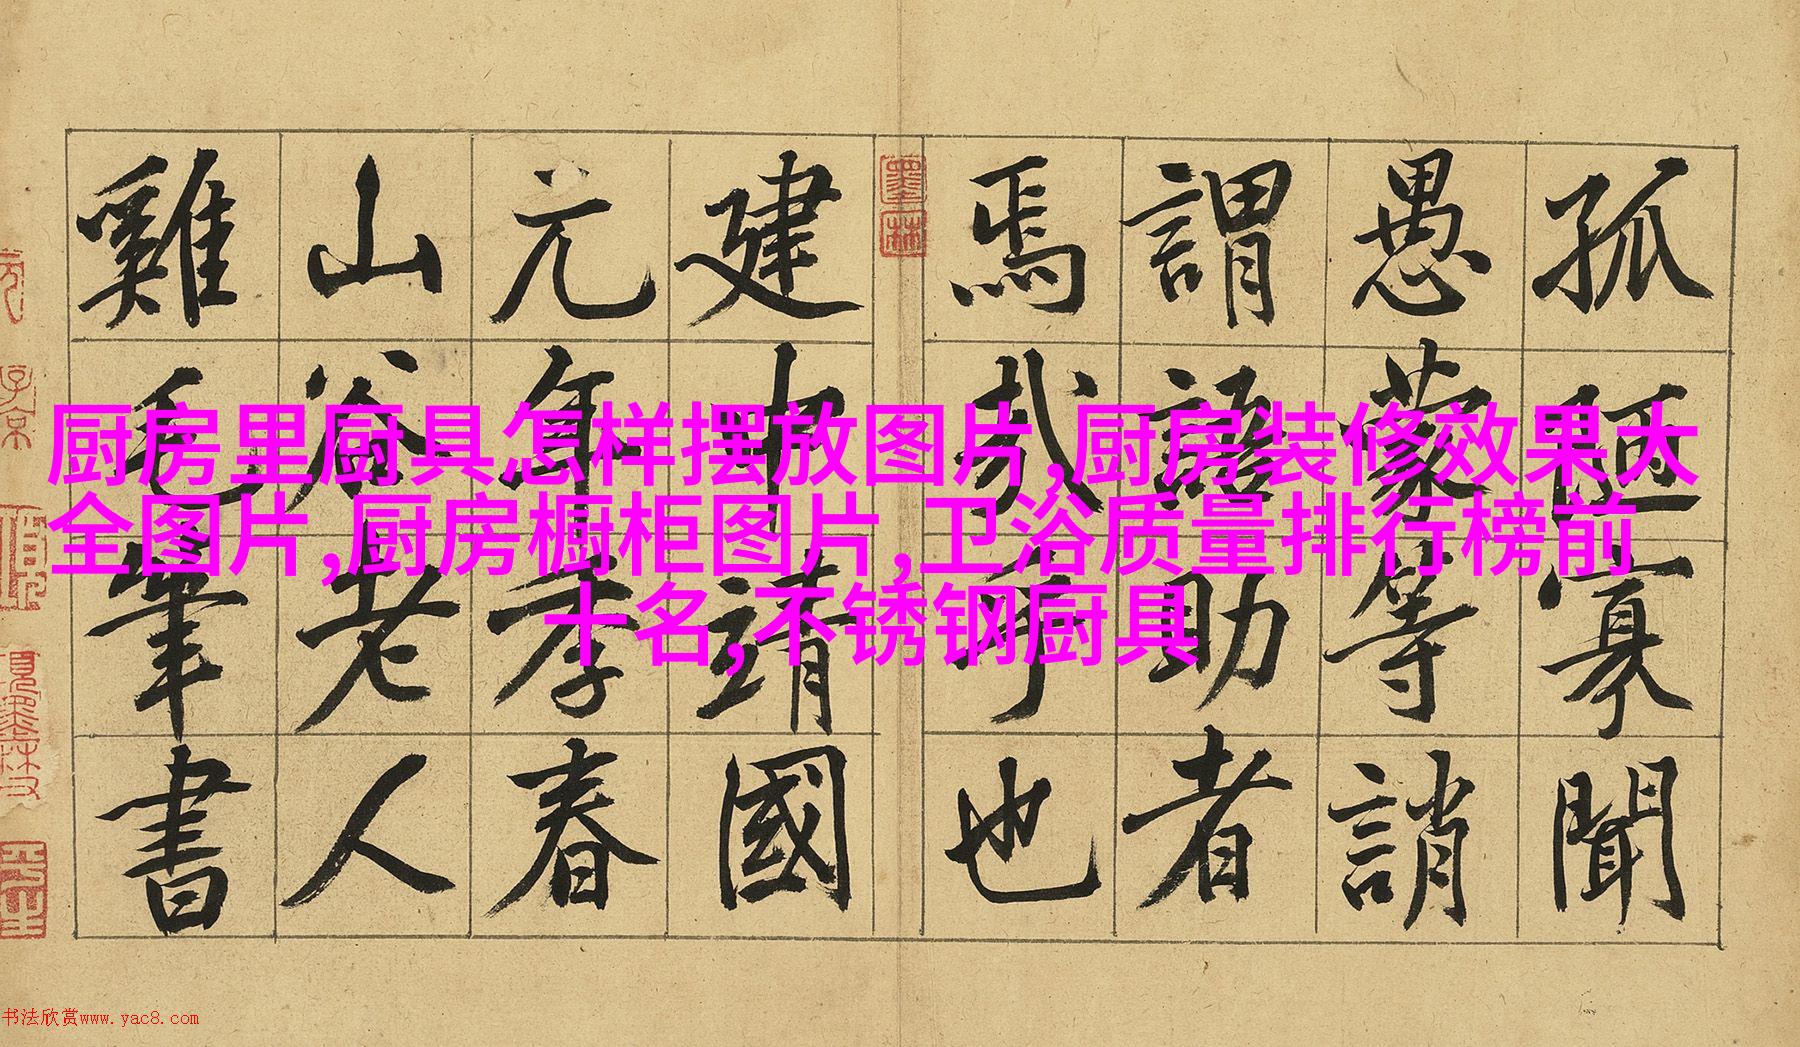 孤陋寡聞
愚蒙等誚
謂語助者
焉哉乎也
建中靖國
元年季春
山谷老人
雞毛筆書
墨林
厨房里厨具怎样摆放图片,厨房装修效果大
全图片,厨房橱柜图片,卫浴质量排行榜前
十名,不锈钢厨具
子京
书法欣赏www.yac8.com